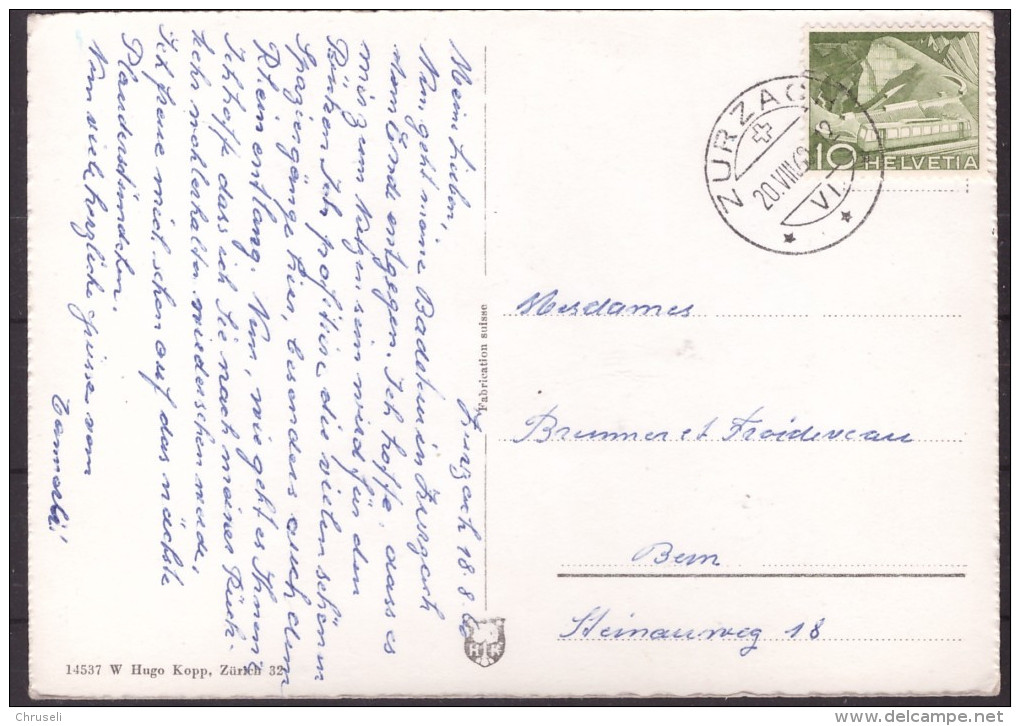 Zurzach 18.8.60
Meine Lieben,
Nun geht meine Badekur in Zurzach
dem Ende entgegen. Ich hoffe, dass es
mir zum Nutzen sein wird für den
Rücken. Ich profitiere die vielen schönen
Spaziergänge hier, besonders auch dem
Rhein entlang. Nun, wie geht es Ihnen?
Ich hoffe dass ich Sie nach meiner Rück-
kehr wohlerhalten wiedersehen werde,
Ich freue mich schon auf das nächste
Plauderstündchen.
Nun viele herzliche Grüsse von
ZURZACH
20.VIII.60
VI
10 HELVETIA
Mesdames
Brunner et Froideveau
Bern
Steinauweg 18
Fabrication suisse
HK
14537 W Hugo Kopp, Zürich 32
Chruseli
http://www.delcampe.net